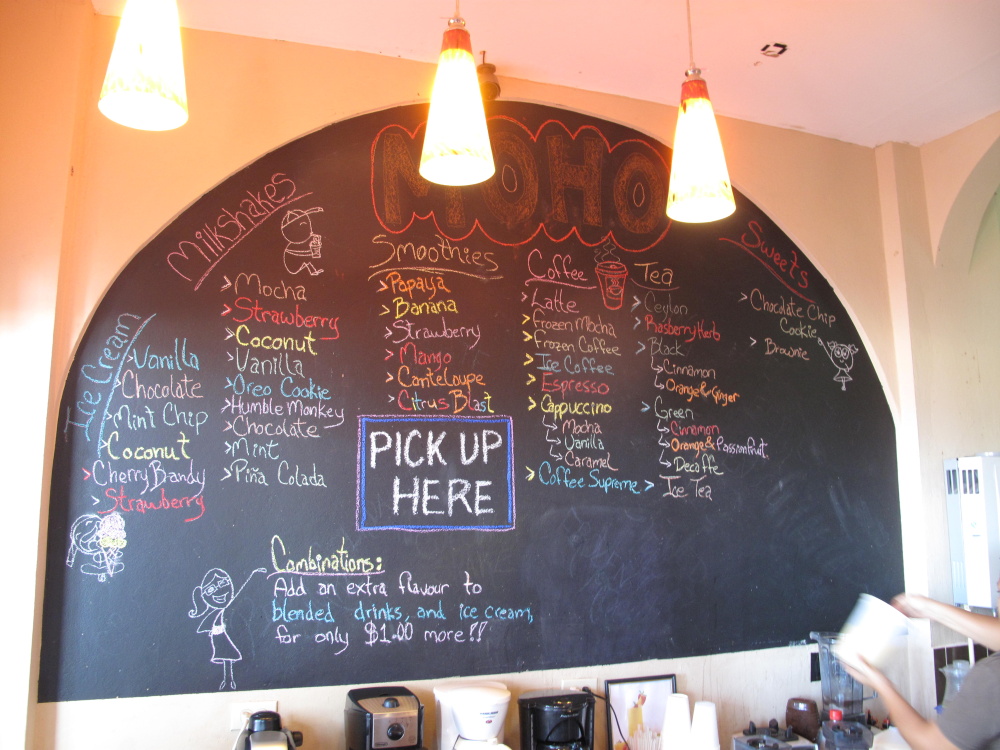 MOHO
Milkshakes
> Mocha
> Strawberry
> Coconut
> Vanilla
> Oreo Cookie
> Humble Monkey
> Chocolate
> Mint
> Piña Colada
Ice Cream
> Vanilla
> Chocolate
> Mint Chip
> Coconut
> Cherry Bandy
> Strawberry
Smoothies
> Papaya
> Banana
> Strawberry
> Mango
> Canteloupe
> Citrus Blast
PICK UP
HERE
Coffee
> Latte
> Frozen Mocha
> Frozen Coffee
> Ice Coffee
> Espresso
> Cappuccino
Mocha
Vanilla
Caramel
> Coffee Supreme
Tea
> Ceylon
> Rasberry Herb
> Black
Cinnamon
Orange & Ginger
> Green
Cinnamon
Orange & Passionfruit
Decaffe
> Ice Tea
Sweets
> Chocolate Chip
Cookie
> Brownie
Combinations:
Add an extra flavour to
blended drinks, and ice cream,
for only $1.00 more!!